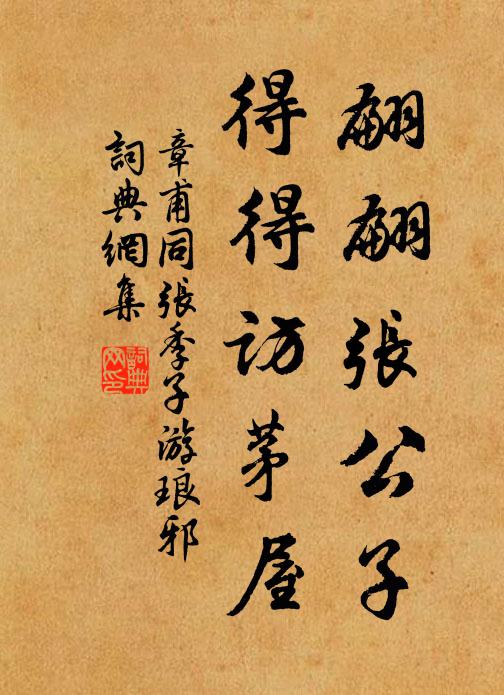 翩翩張公子
得得访茅屋
章甫同張季子游琅邪
詞典網集
詞典網印